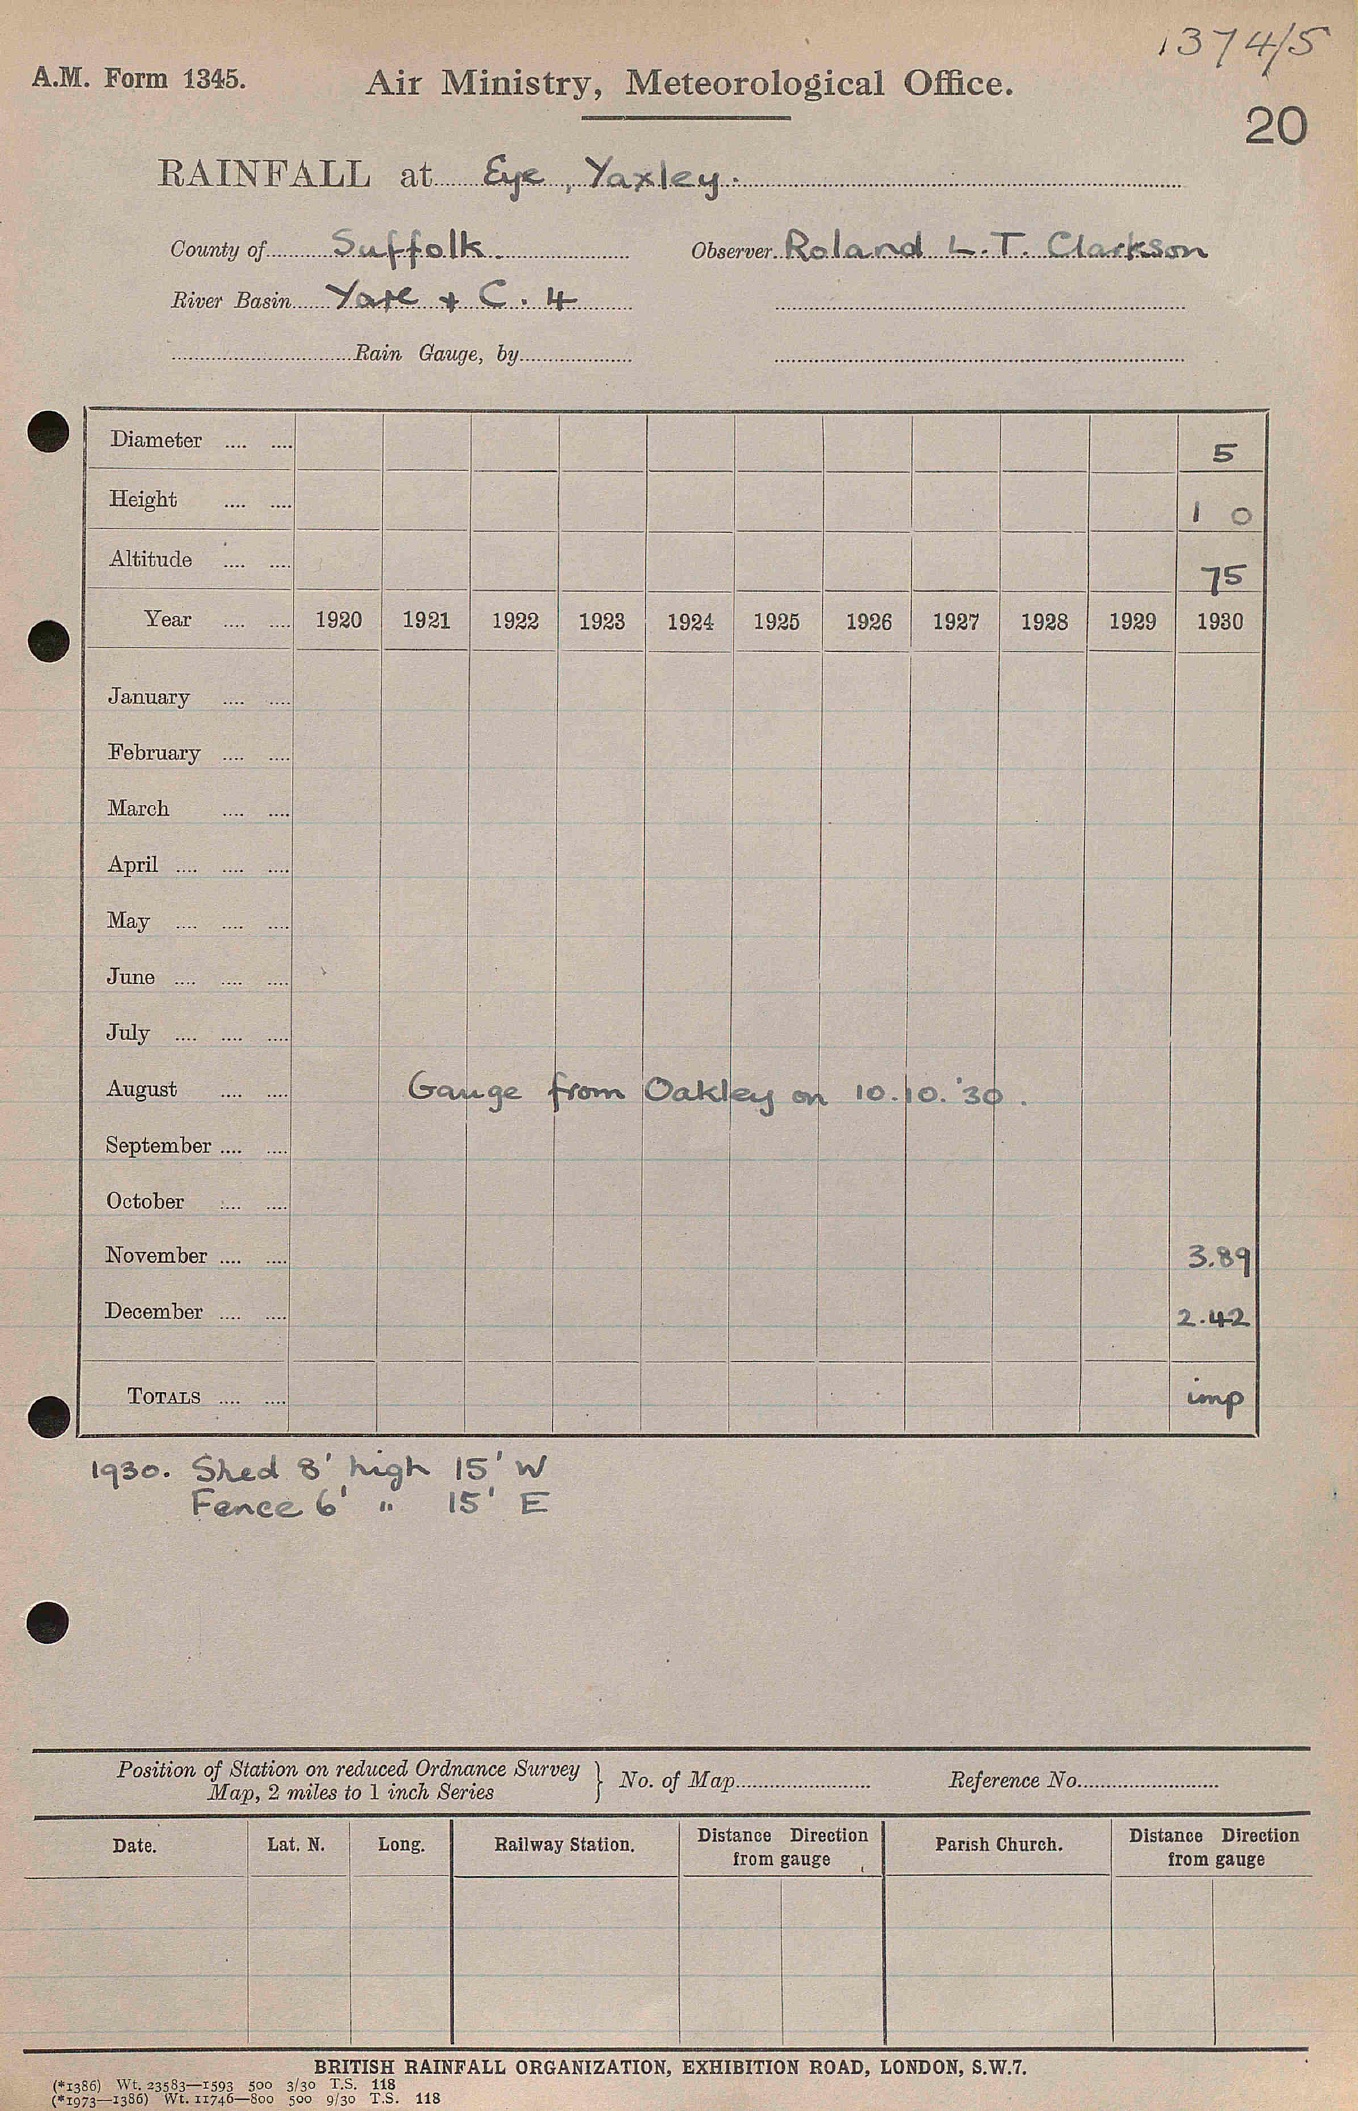 1374/5
A.M. Form 1345. Air Ministry, Meteorological Office.
20
RAINFALL at Eye, Yaxley.
County of Suffolk Observer Roland L.T. Clarkson
River Basin Yare + C. 4
Rain Gauge, by
Diameter .... .... 5
Height .... .... 1 0
Altitude .... .... 75
Year .... .... 1920 1921 1922 1923 1924 1925 1926 1927 1928 1929 1930
January .... ....
February .... ....
March .... ....
April .... .... ....
May .... .... ....
June .... .... ....
July .... .... ....
August .... .... Gauge from Oakley on 10.10.'30.
September .... ....
October .... ....
November .... .... 3.89
December .... .... 2.42
TOTALS .... .... imp
1930. Shed 8' high 15' W
Fence 6' " 15' E
Position of Station on reduced Ordnance Survey
Map, 2 miles to 1 inch Series } No. of Map Reference No.
Date. Lat. N. Long. Railway Station. Distance Direction from gauge Parish Church. Distance Direction from gauge
BRITISH RAINFALL ORGANIZATION, EXHIBITION ROAD, LONDON, S.W.7.
(*1386) Wt. 23583—1593 500 3/30 T.S. 118
(*1973—1386) Wt. 11746—800 500 9/30 T.S. 118